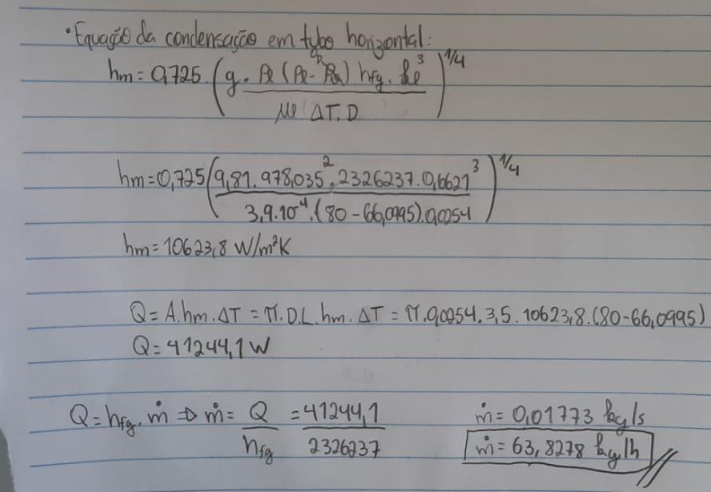 • Equação da condensação em tubo horizontal:
hm = 0,725 . (g . ρℓ (ρℓ - ρv) hfg . kℓ³ / μℓ ΔT . D)^1/4
hm = 0,725 (9,81 . 978,035² . 2326237 . 0,6621³ / 3,9 . 10⁻⁴ . (80 - 66,0995) . 0,0254)^1/4
hm = 10623,8 W/m²K
Q = A . hm . ΔT = π . D . L . hm . ΔT = π . 0,0254 . 3,5 . 10623,8 . (80 - 66,0995)
Q = 41244,1 W
Q = hfg . ṁ ⇒ ṁ = Q / hfg = 41244,1 / 2326237
ṁ = 0,01773 kg/s
ṁ = 63,8278 kg/h